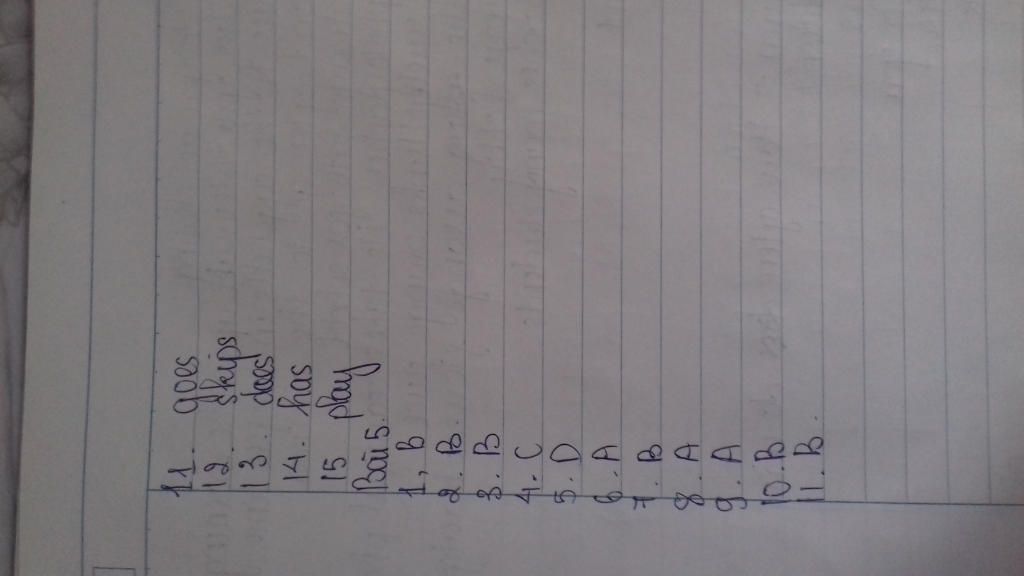 11. goes
12. skips
13. does
14. has
15 play
Bài 5.
1, B
2. B.
3. B
4. C
5. D
6. A
7. B
8. A
9. A
10. B
11. B.